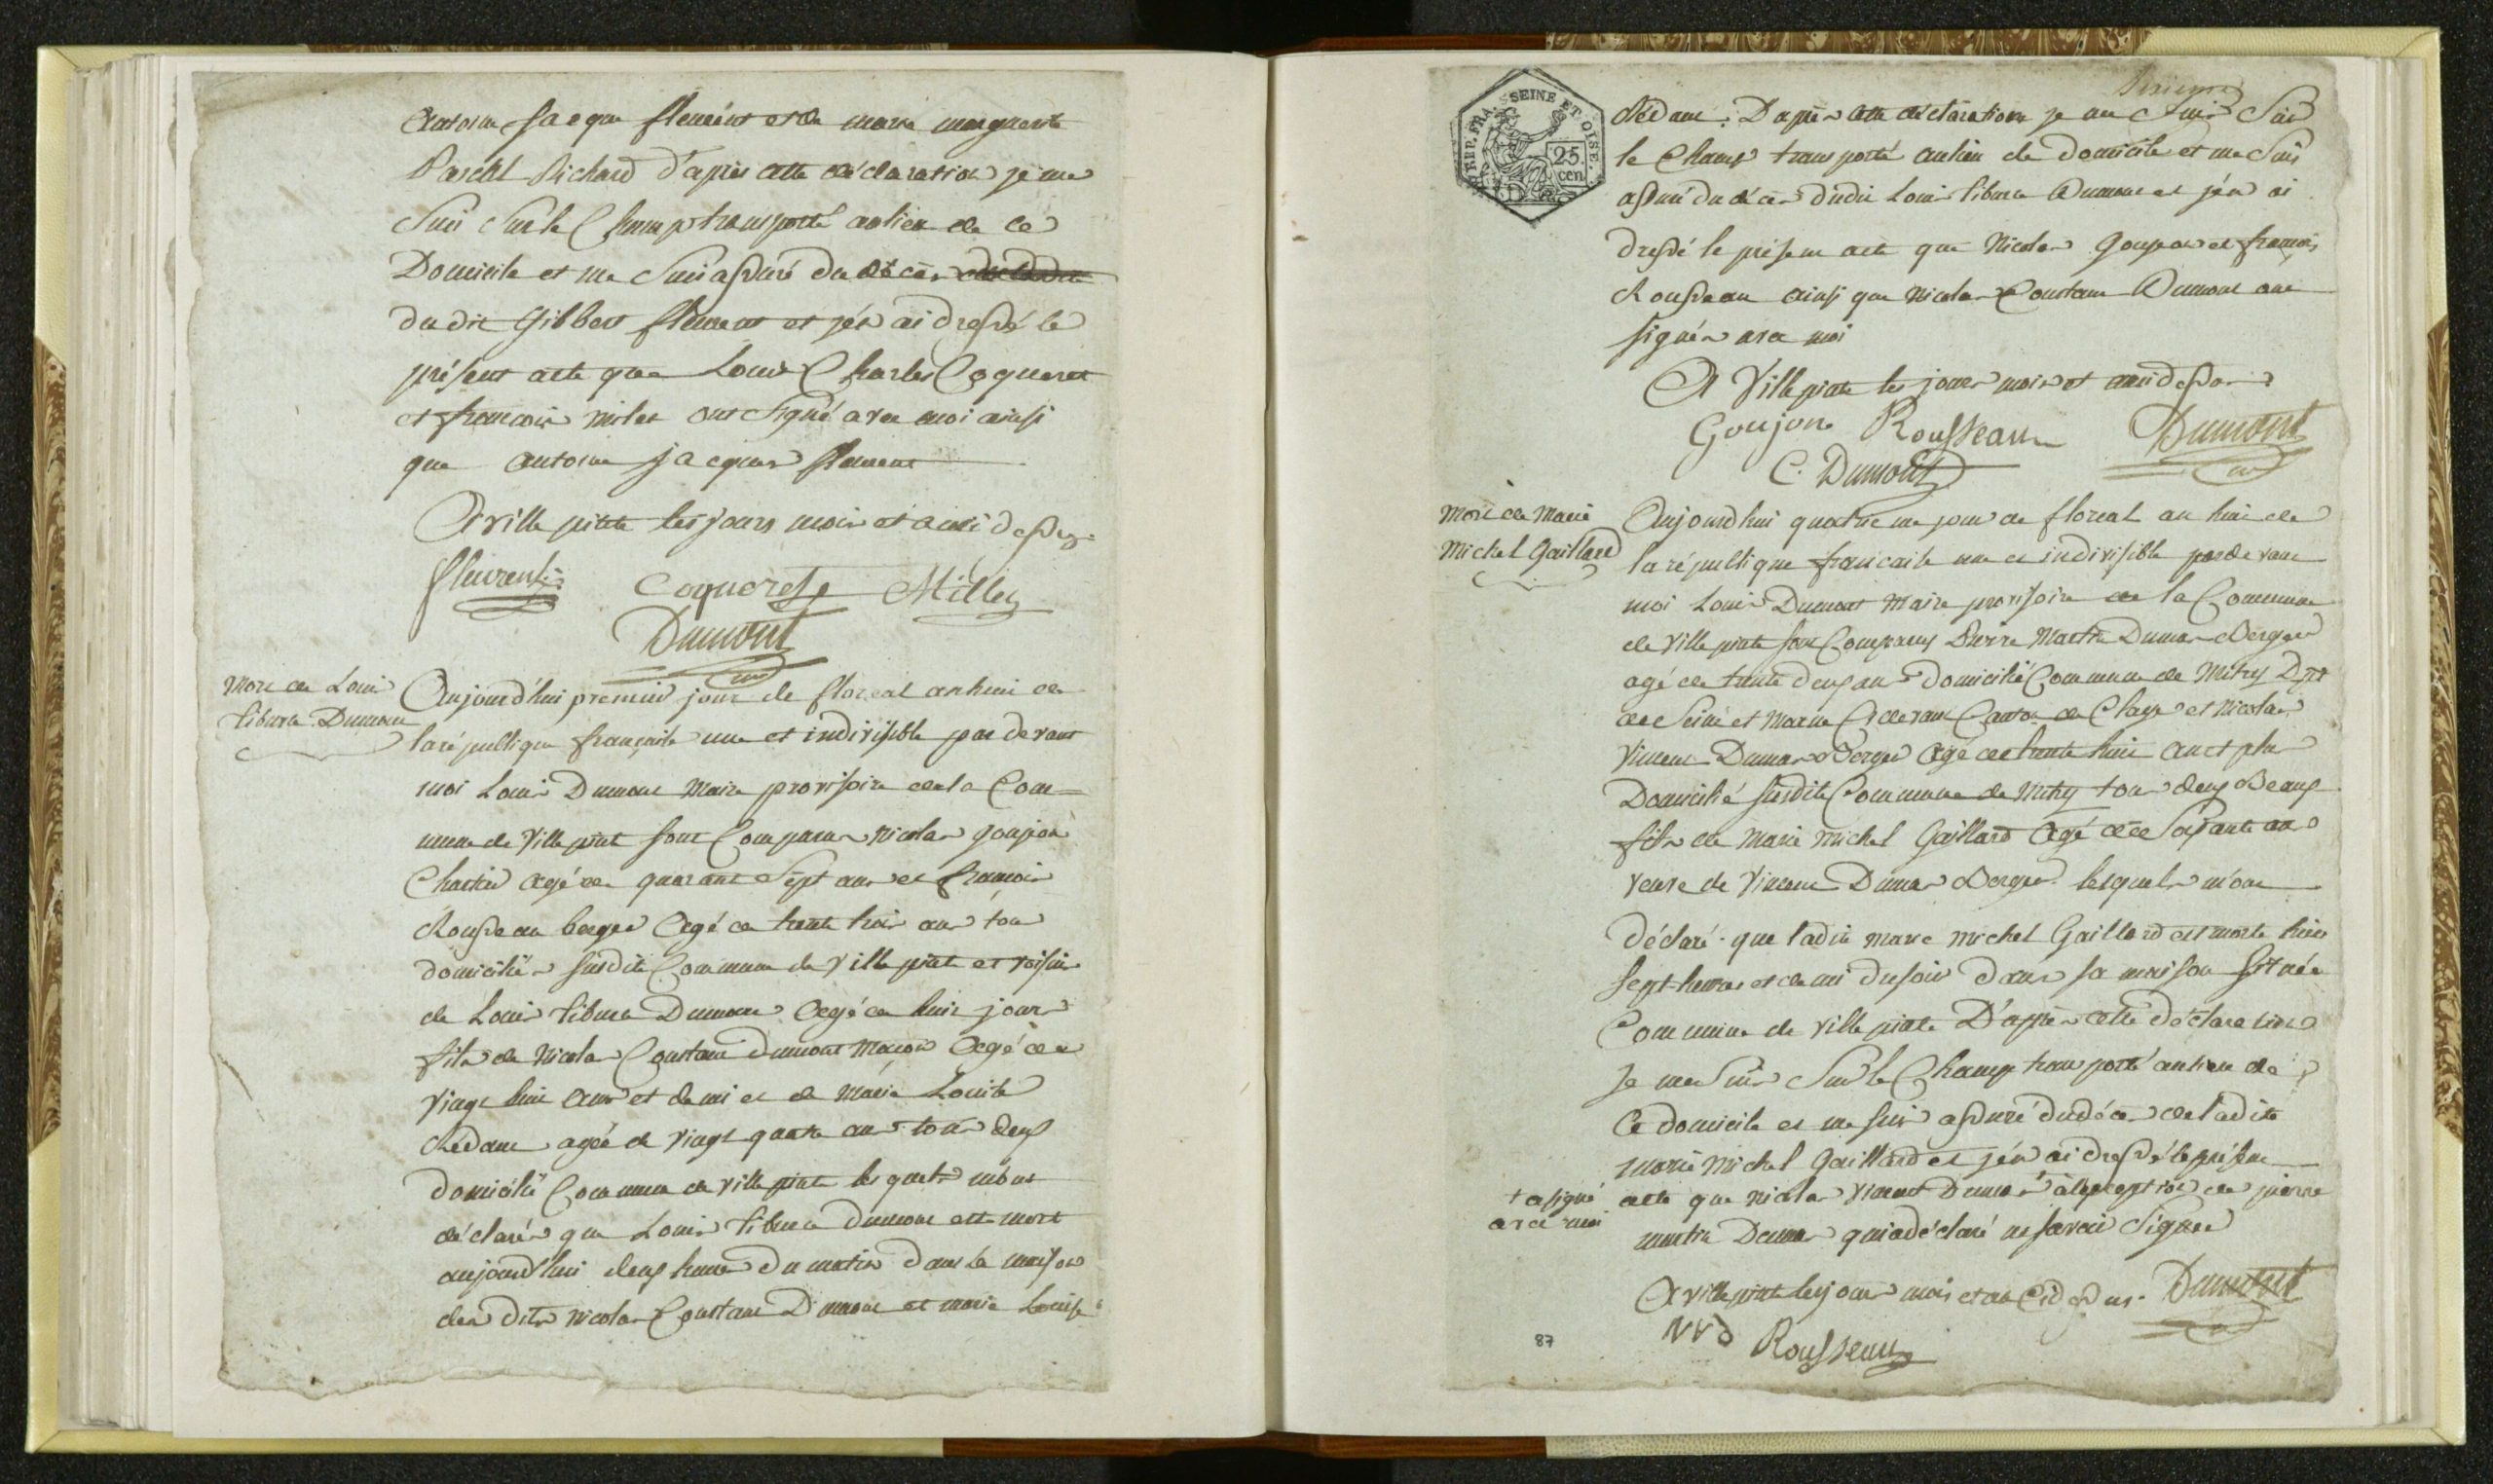 Antoine Jacque fleurent et de marie margueritte
Parchl Richard d'après cette déclaration je me
Suis Sur le Champ transporté au lieu de ce
Domicile et me Suis assuré du décès
du dit Gilbert fleurent et j'én ai dressé le
présent acte que Louis Charles Coqueret
et francois milet ont Signé avec moi ainsi
que antoine jacques fleurent
A ville pinte les jours mois et an ci dessus
fleurent Coqueret Milley
Dumont
mort de Loui
tiburce Dumont
Aujourd'hui premier jour de floreal an huit de
la république française une et indivisible par devant
moi Louis Dumont Maire provisoire de la Com-
mune de Ville pint sont Comparus Nicolas goujon
Chartier agé de quarante Sept ans et francois
Rousseau berger agé de trente trois ans tous
domiciliés susdite Commune de Ville pinte et voisin
de Louis tiburce Dumont agé de huit jours
fils de Nicolas Constant Dumont maçon agé de
vingt huit ans et demi et de Marie Louise
Redant agée de vingt quatre ans tous deux
domicilié Commune de ville pinte les quels m'ont
déclarés que Louis tiburce Dumont est mort
aujourd'hui deux heures du matin dans la maison
des dits nicolas Constant Dumont et marie Louise
REP. FRA. SEINE ET OISE.
25.
cen
Rédant. D'après cette déclaration je me Suis Sur
le Champ transporté au lieu de Domicile et me Suis
assuré du décès dudit Louis tiburce Dumont et j'én ai
dressé le présent acte que Nicolas Goujon et francois
Rousseau ainsi que Nicolas Constant Dumont ont
signés avec moi
A Villepinte les jours mois et an ci dessus
Goujon Rousseau Dumont
C. Dumont
Mort de Marie
Michel Gaillard
Aujourd'hui quatrieme jour de floreal an huit de
la république francaise une et indivisible par devant
moi Louis Dumont Maire provisoire de la Commune
de Ville pinte sont Comparus Pierre Martin Dumas Berger
agé de trente deux ans domicilié Commune de Mitry Dpt
de Seine et Marne Canton de Claye et Nicolas
Vincent Dumas Berger agé de trente huit an et plus
Domicilié susdite Commune de Mitry tous deux Beaux
fils de Marie Michel Gaillard agé de Soixante ans
veuve de Vincent Dumas Berger lesquels m'ont
déclaré que ladite marie michel Gaillard est morte hier
sept heures et demi du soir dans sa maison située
Commune de Ville pinte D'après cette déclaration
Je me Suis Sur le Champ transporté au lieu de
Ce domicile et me suis assuré du décès de ladite
marie Michel Gaillard et j'én ai dressé le présent
+ a signé
avec moi
acte que Nicolas Vincent Dumas + à l'exception de pierre
martin Dumas qui a déclaré ne savoir Signer
A ville pinte les jours mois et an Ci dessus. Dumont
NVD Rousseau
87